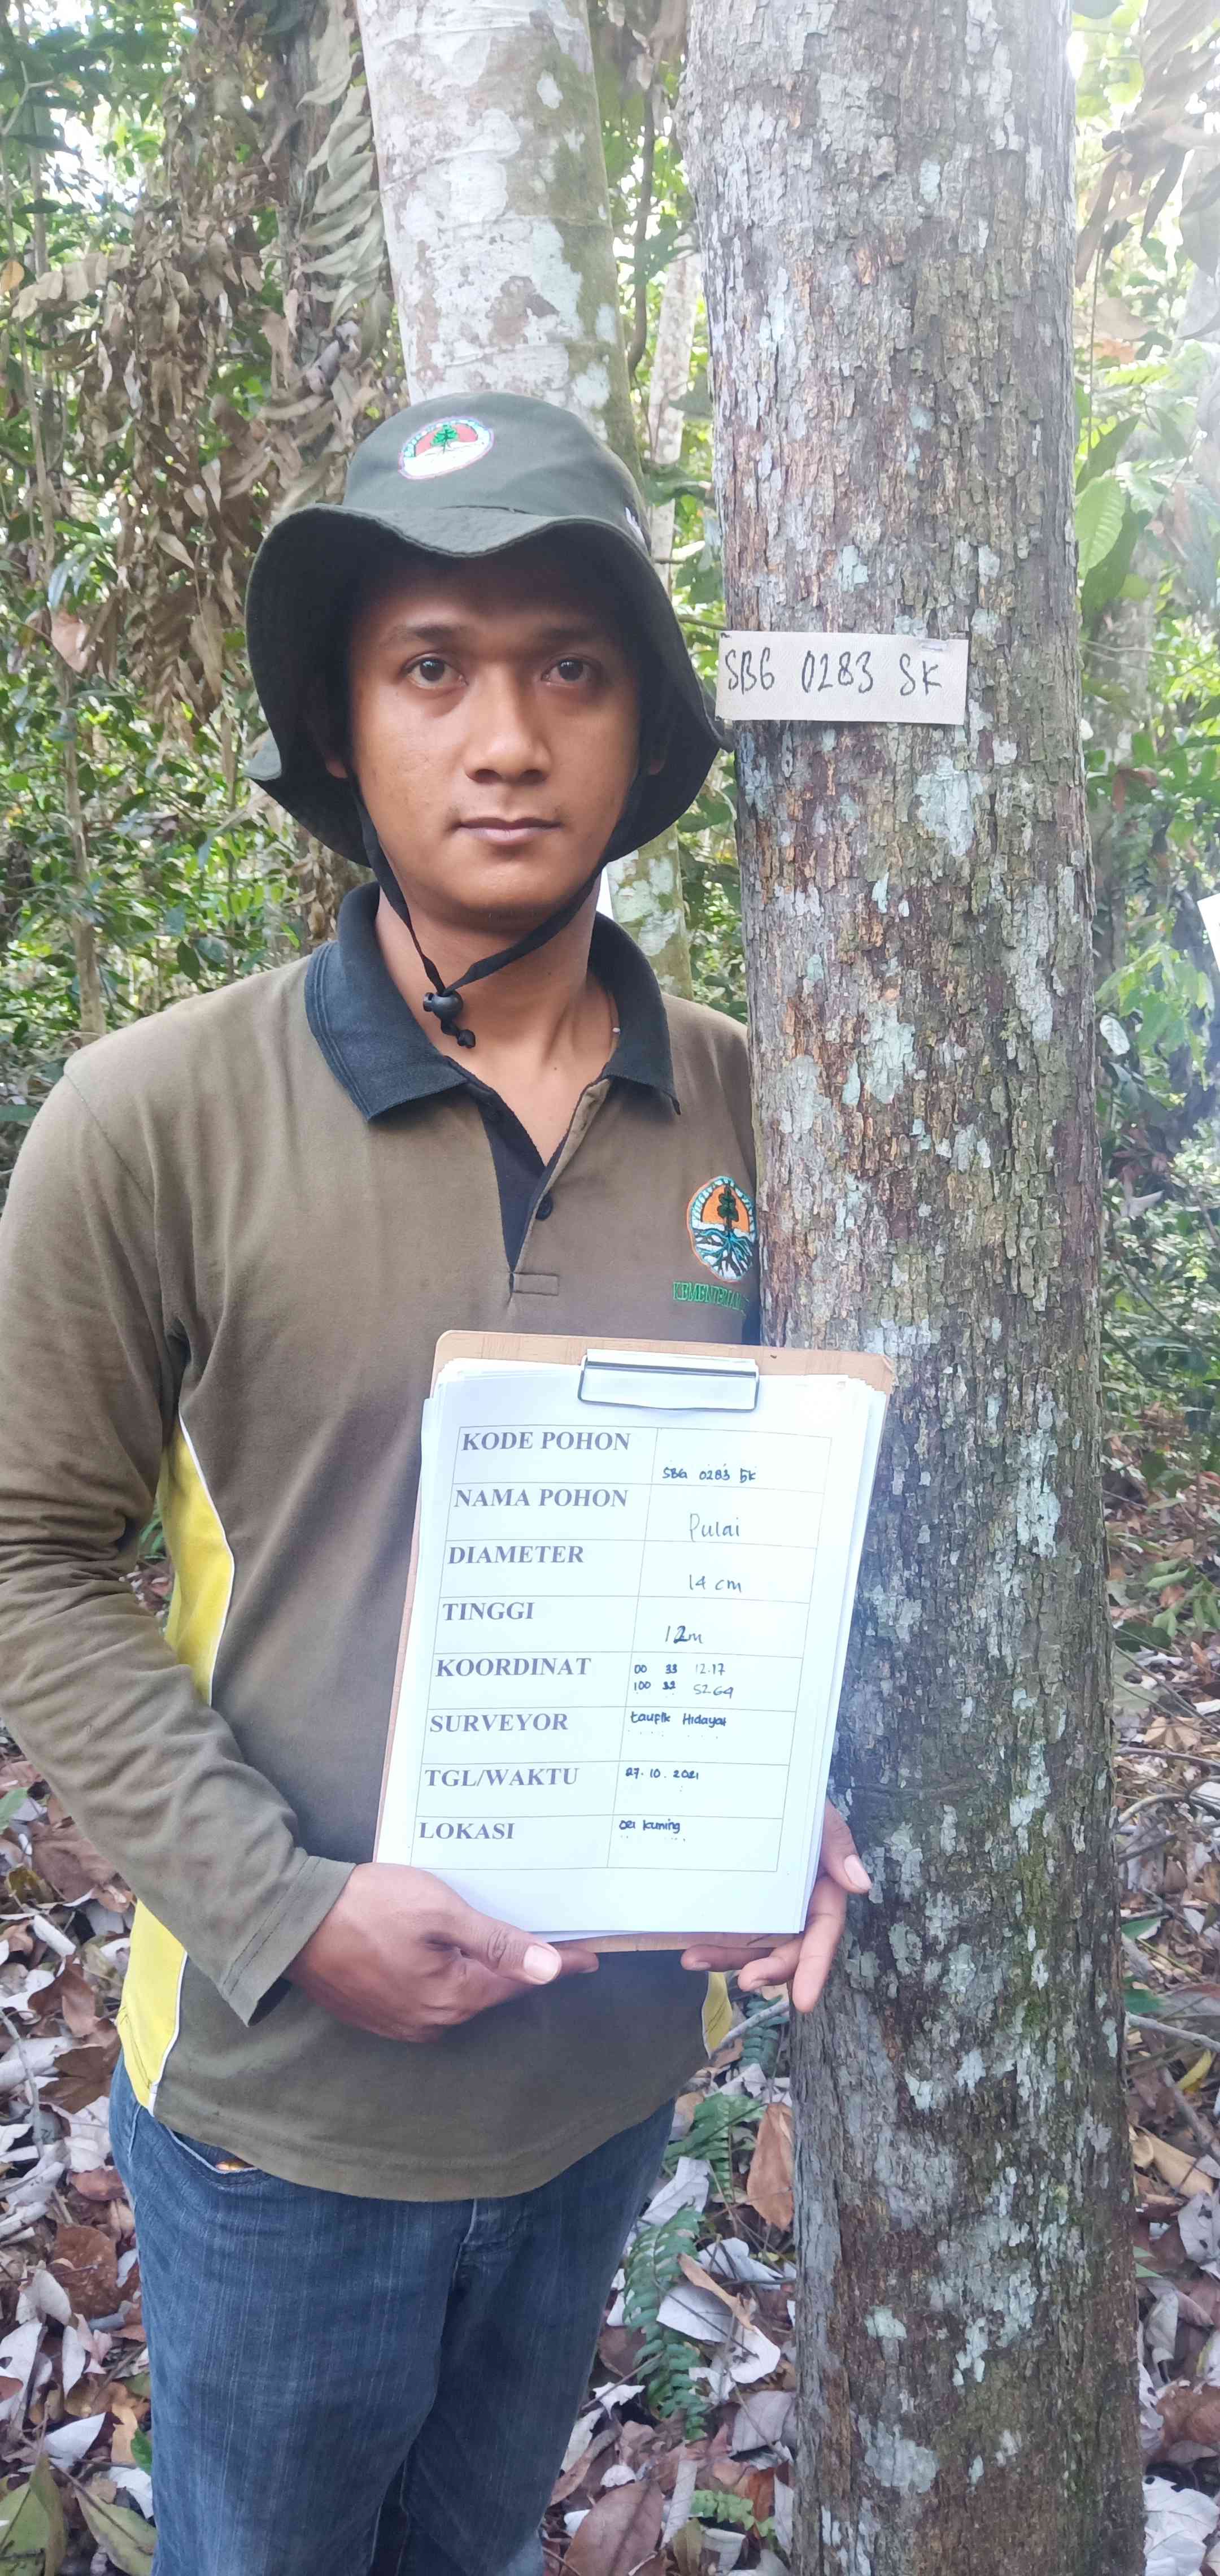 SBG 0283 SK
KEMENTERIAN
KODE POHON SBG 0283 SK
NAMA POHON Pulai
DIAMETER 14 cm
TINGGI 12m
KOORDINAT 00 33 12.17
100 32 52.69
SURVEYOR taufik Hidayat
TGL/WAKTU 27.10.2021
LOKASI sei kuning